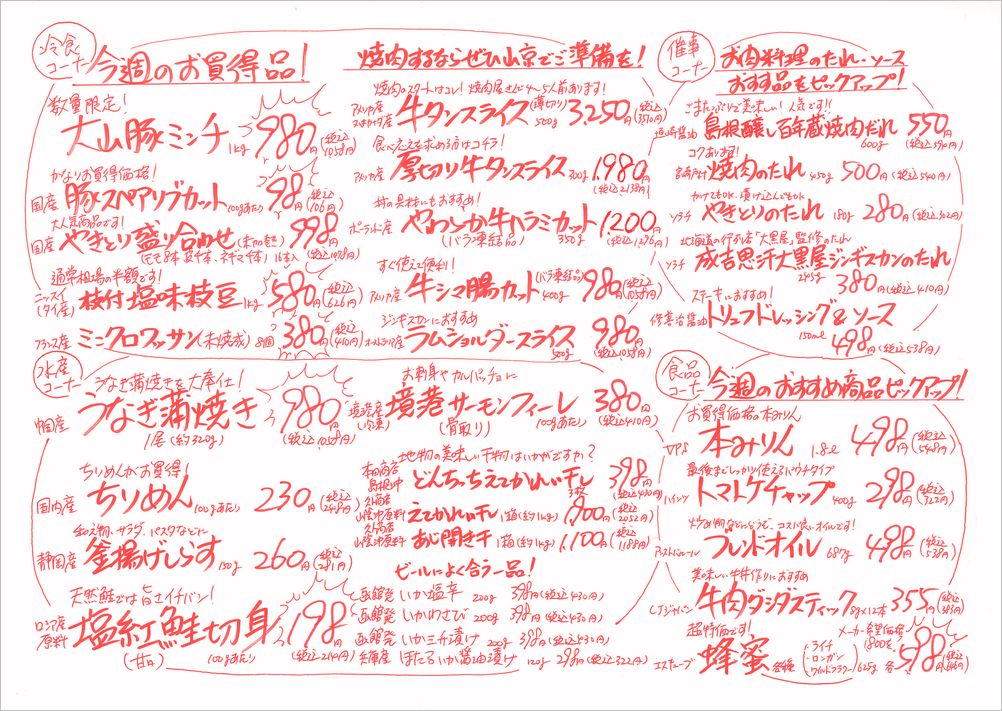 冷食コーナー
今週のお買得品!
数量限定!
大山豚ミンチ 1kg 980円(税込1058円)
かなりお買得価格!
国産 豚スペアリブカット 100gあたり 98円(税込106円)
大人気商品です!
国産 やきとり盛り合わせ(未加熱) 998円
(もも8本 皮4本 ネギマ4本) 16本入 (税込1078円)
通常相場の半額です!
ニッスイ(タイ産) 枝付塩味枝豆 1kg 580円(税込626円)
フランス産 ミニクロワッサン(未焼成) 8個 380円(税込410円)
焼肉するならぜひ山京でご準備を!
焼肉のスタートはコレ! 焼肉屋さんで4〜5人前あります!
アメリカ産 牛タンスライス(薄切り) 500g 3,250円(税込3510円)
食べ応えを求める方はコチラ!
アメリカ産 厚切り牛タンスライス 300g 1,980円(税込2138円)
丼の具材にもおすすめ!
ポーランド産 やわらか牛ハラミカット 1,200円
(バラ凍結品) 350g (税込1296円)
すぐ使えて便利!
アメリカ産 牛シマ腸カット(バラ凍結品) 400g 980円(税込1058円)
ジンギスカンにおすすめ
オーストラリア産 ラムショルダースライス 500g 980円(税込1058円)
催事コーナー
お肉料理のたれ・ソース
おすす品をピックアップ!
ごまたっぷりで美味しい 人気です!!
島根醸し百年蔵焼肉だれ 600g 550円(税込590円)
コクあり旨!
宮崎戸村 焼肉のたれ 450g 500円(税込540円)
かけてもOK、漬け込んでもOK
ソラチ やきとりのたれ 180g 280円(税込302円)
北海道の行列店「大黒屋」監修のたれ
ソラチ 成吉思汗大黒屋ジンギスカンのたれ
245g 380円(税込410円)
ステーキにおすすめ!
トリュフドレッシング&ソース
150ml 498円(税込538円)
水産コーナー
うなぎ蒲焼きを大奉仕!
中国産 うなぎ蒲焼き 980円
1尾(約320g) (税込1058円)
ちりめんがお買得!
国内産 ちりめん 100gあたり 230円(税込248円)
和え物、サラダ、パスタなどに
静岡産 釜揚げしらす 150g 260円(税込281円)
天然鮭では旨さイチバン!
ロシア産原料 塩紅鮭切身 198円
(甘口) 100gあたり (税込214円)
お刺身やカルパッチョに
境港産(肉養) 境港サーモンフィーレ 380円
(骨取り) 100gあたり (税込410円)
地物の美味しい干物はいかがですか?
本田商店 島根県沖 どんちっちえてかれい干し 3枚 398円(税込430円)
山陰沖原料 えてかれい干し 1箱(約1kg) 1,900円(税込2052円)
山陰沖原料 あじ開き干 1箱(約1kg) 1,100円(税込1188円)
ビールによく合う一品!
函館発 いか塩辛 200g 398円(税込430円)
函館発 いかわさび 200g 398円(税込430円)
函館発 いか三升漬け 200g 398円(税込430円)
兵庫産 ほたるいか醤油漬け 120g 298円(税込322円)
食品コーナー
今週のおすすめ商品ピックアップ!
お買得価格の本みりん
VPS 本みりん 1.8ℓ 498円(税込548円)
最後までしっかり使えるパウチタイプ
ハインツ トマトケチャップ 400g 298円(税込322円)
炒め物などにどうぞ、コスパ良しオイルです!
ブレンドオイル 687g 498円(税込538円)
美味しい牛丼作りにおすすめ
CJジャパン 牛肉ダシダスティック 8g×12本 355円(税込383円)
超特価です!
メーカー希望価格1800を
エスキューブ 蜂蜜 各種 (・ライチ ・ロンガン ・ワイルドフラワー) 625g 各 598円(税込646円)